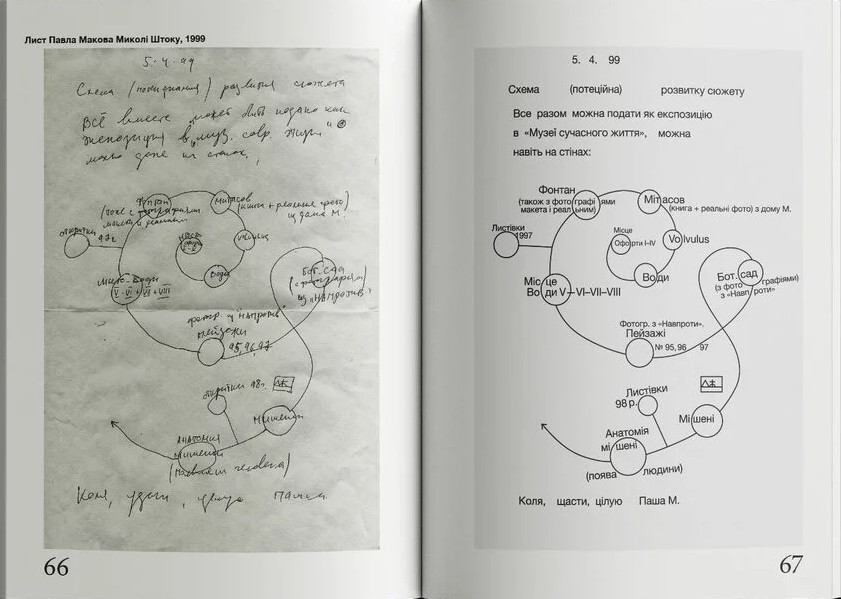 Лист Павла Макова Миколі Штоку, 1999
5.4.99
Схема (потенциания) развития сюжета
Всё вместе может быть подано как
экспозиция в "муз. совр. жизни"
можно даже на стенах,
Фонтан
(тоже с фотографиями
макета и реальным)
Митасов
(книги + реальные фото)
из дома М.
открытки
97г.
Место
офорты
I-IV
Volvulus
Воды
Место-Воды
V-VI + VII + VIII
Бот. сад
(с фотографиями)
из "Напротив"
фотогр. из "Напротив"
пейзажи
95, 96, 97
открытки 98г.
Мишени
Анатомия
мишени
(появл. человека)
Коля, удачи, целую Паша
66
5. 4. 99
Схема (потеційна) розвитку сюжету
Все разом можна подати як експозицію
в «Музеї сучасного життя», можна
навіть на стінах:
Фонтан
(також з фотографіями
макета і реальним)
Мітасов
(книга + реальні фото) з дому М.
Листівки
1997
Місце
Офорти I–IV
Volvulus
Води
Місце
Води V–VI–VII–VIII
Бот. сад
(з фотографіями)
з «Навпроти»
Фотогр. з «Навпроти».
Пейзажі
№ 95, 96 97
Листівки
98 р.
Мішені
Анатомія
мішені
(поява людини)
Коля, щасти, цілую Паша М.
67